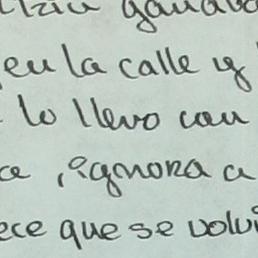 en la calle y
lo llevo con
, ignora a
ece que se volvi